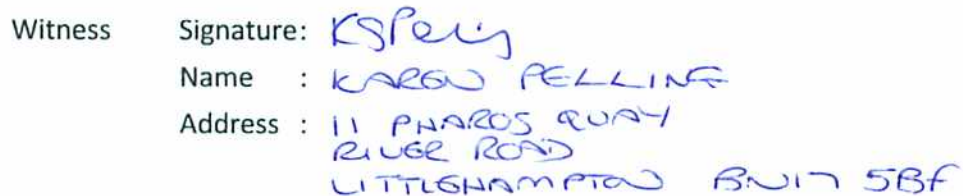 Witness Signature: KSPelling
Name : KAREN PELLING
Address : 11 PHAROS QUAY
RIVER ROAD
LITTLEHAMPTON BN17 5BF